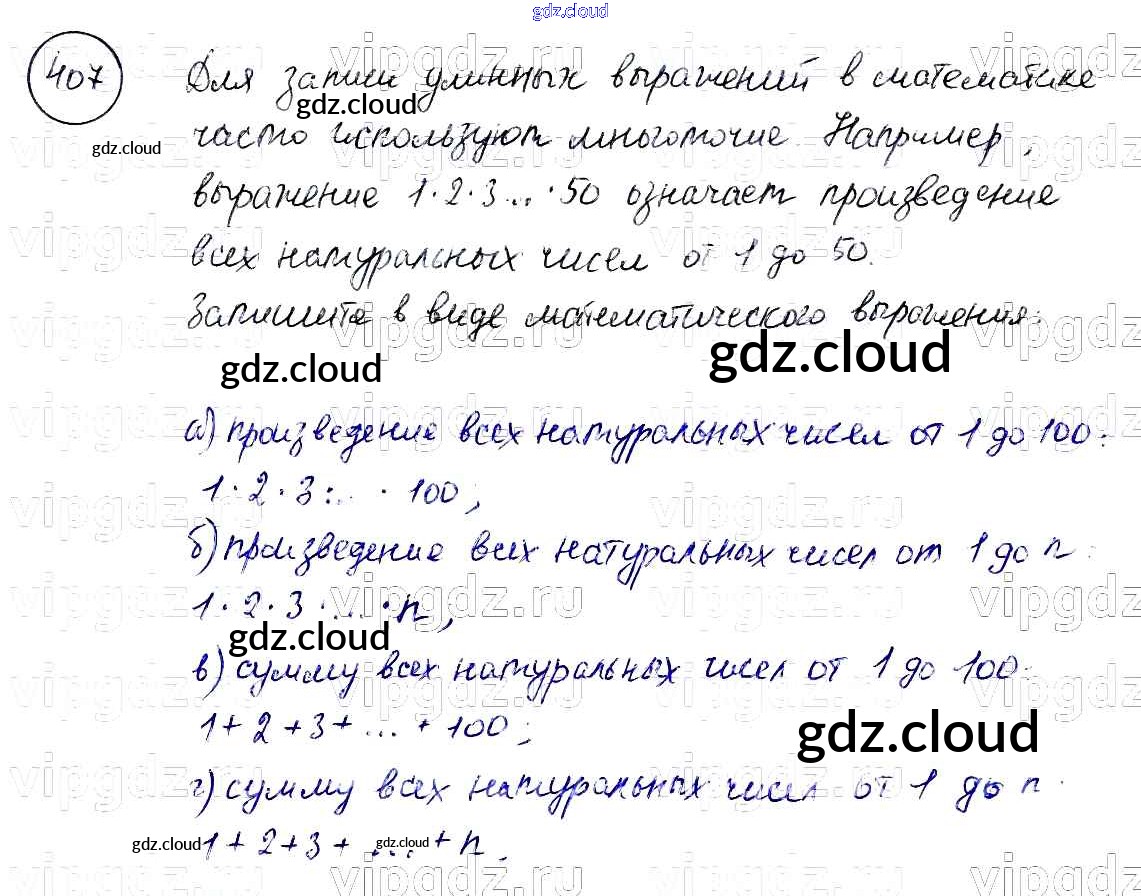 gdz.cloud
407
Для записи длинных выражений в математике
часто используют многоточие Например,
выражение 1·2·3...·50 означает произведение
всех натуральных чисел от 1 до 50.
Запишите в виде математического выражения:
а) произведение всех натуральных чисел от 1 до 100:
1·2·3·...·100;
б) произведение всех натуральных чисел от 1 до n:
1·2·3·...·n;
в) сумму всех натуральных чисел от 1 до 100:
1+2+3+...+100;
г) сумму всех натуральных чисел от 1 до n:
1+2+3+...+n.
gdz.cloud
gdz.cloud
gdz.cloud
gdz.cloud
gdz.cloud
gdz.cloud
gdz.cloud
gdz.cloud
vipgdz.ru